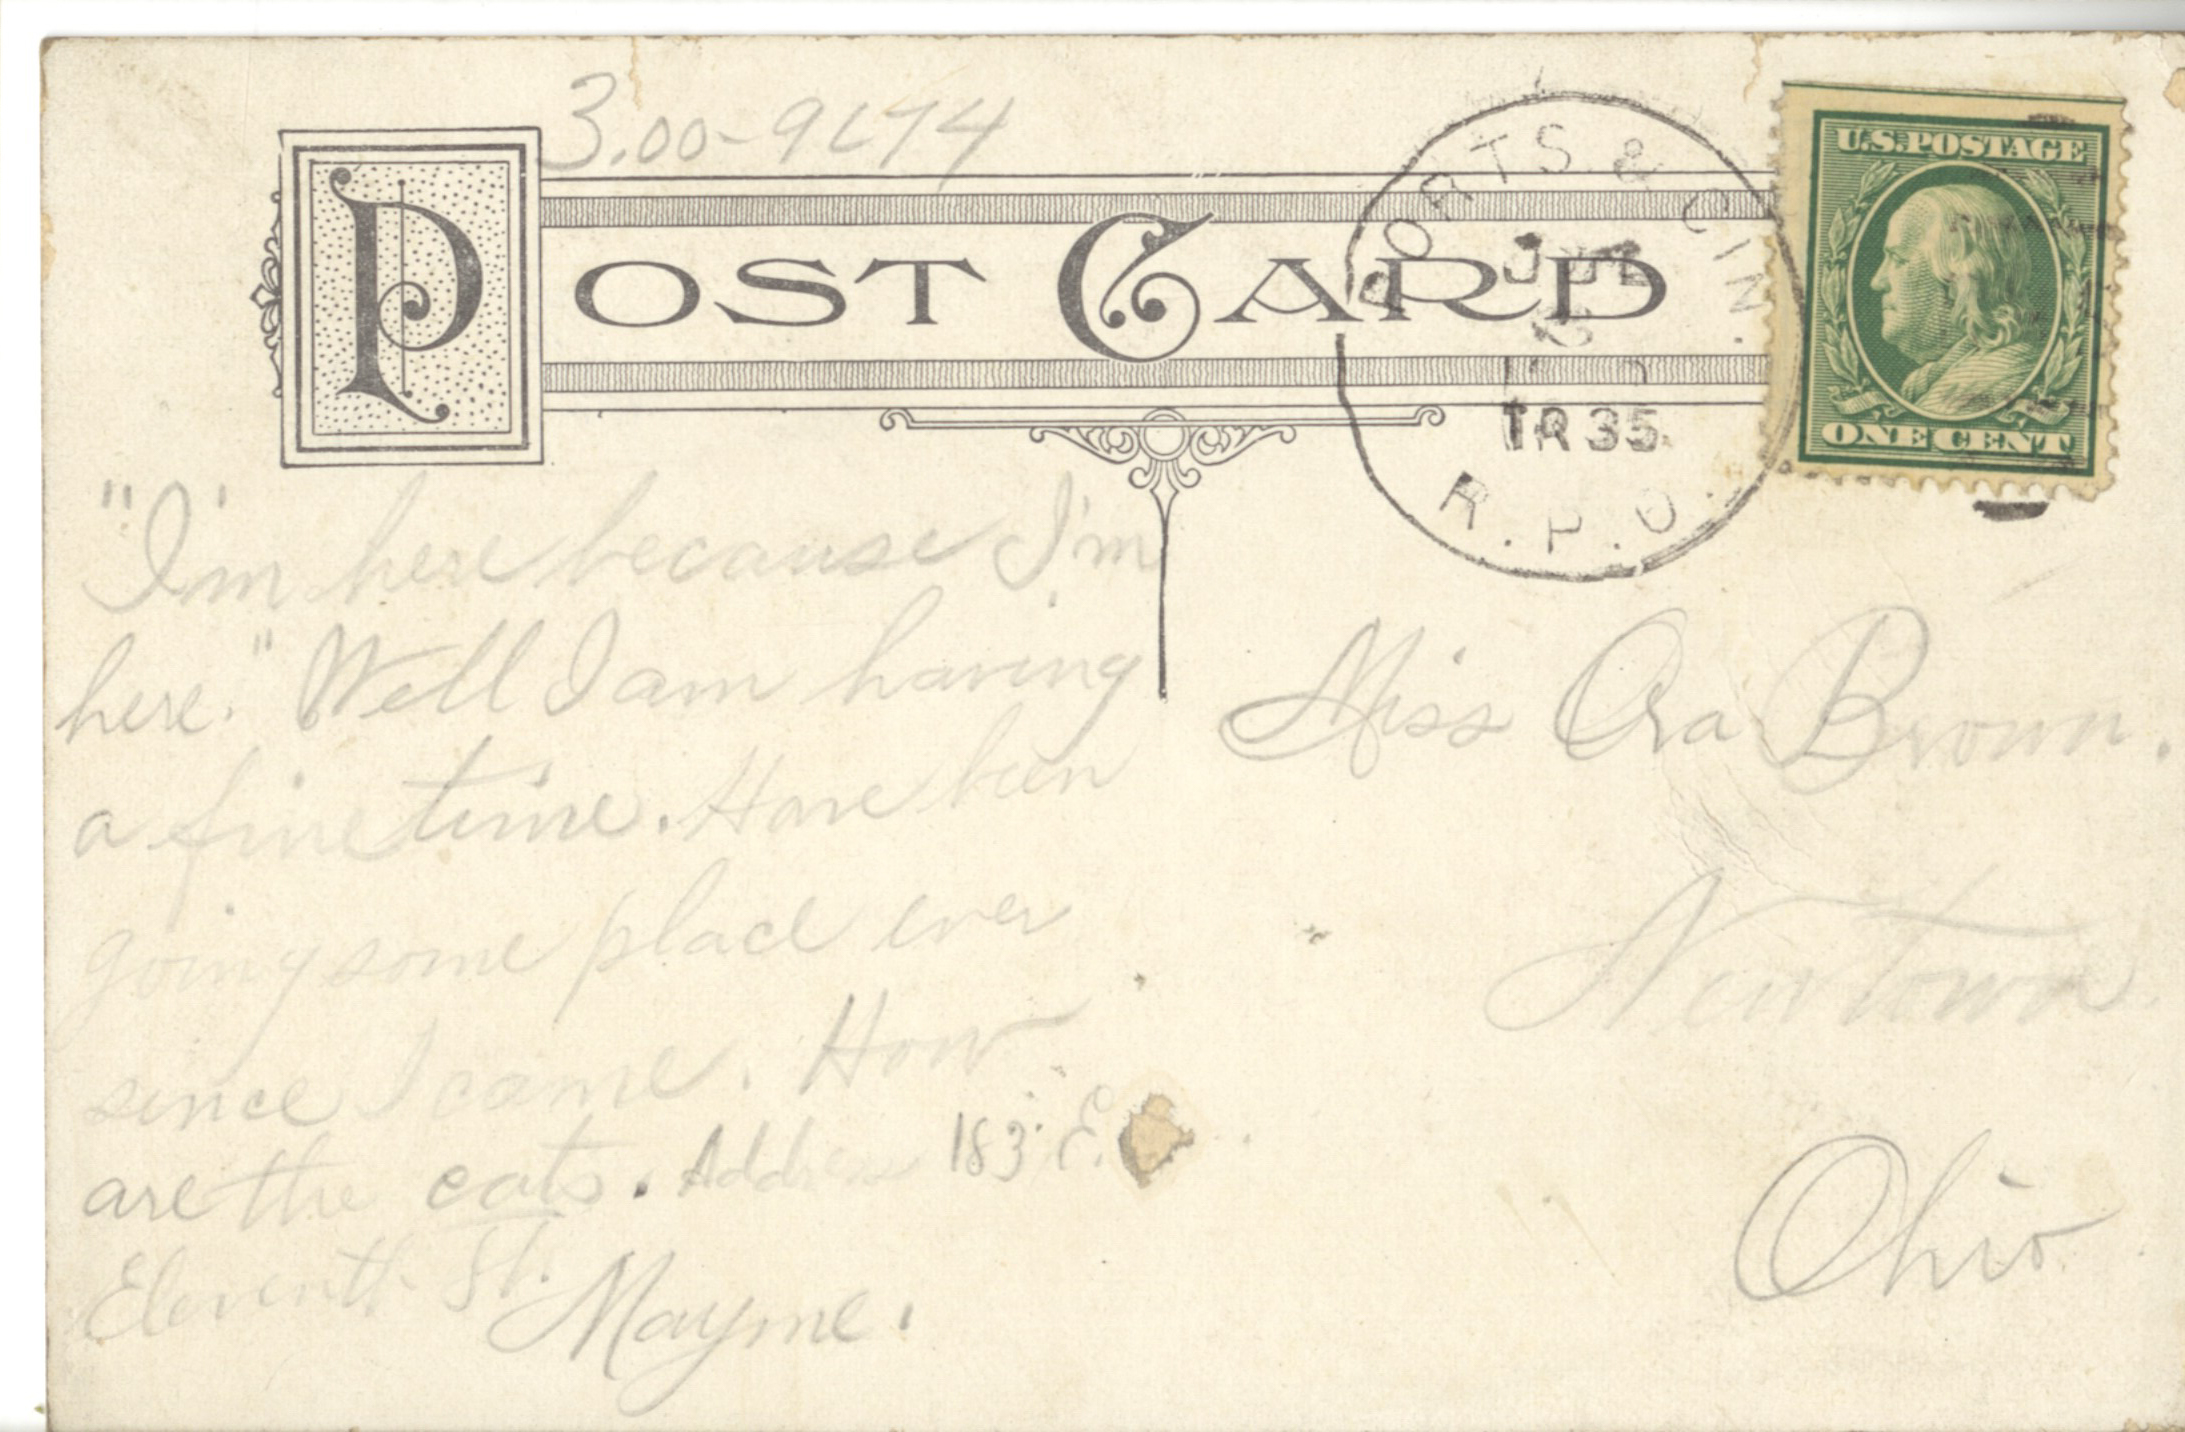 3.00-9L74
POST CARD
PORTS & CIN.
TR 35
R.P.O.
U.S. POSTAGE
ONE CENT
"I'm here because I'm
here." Well I am having
a fine time. Have been
going some place ever
since I came. How
are the cats. Address 183 E.
Eleventh St.
Mayme.
Miss Ora Brown.
Newtown
Ohio.